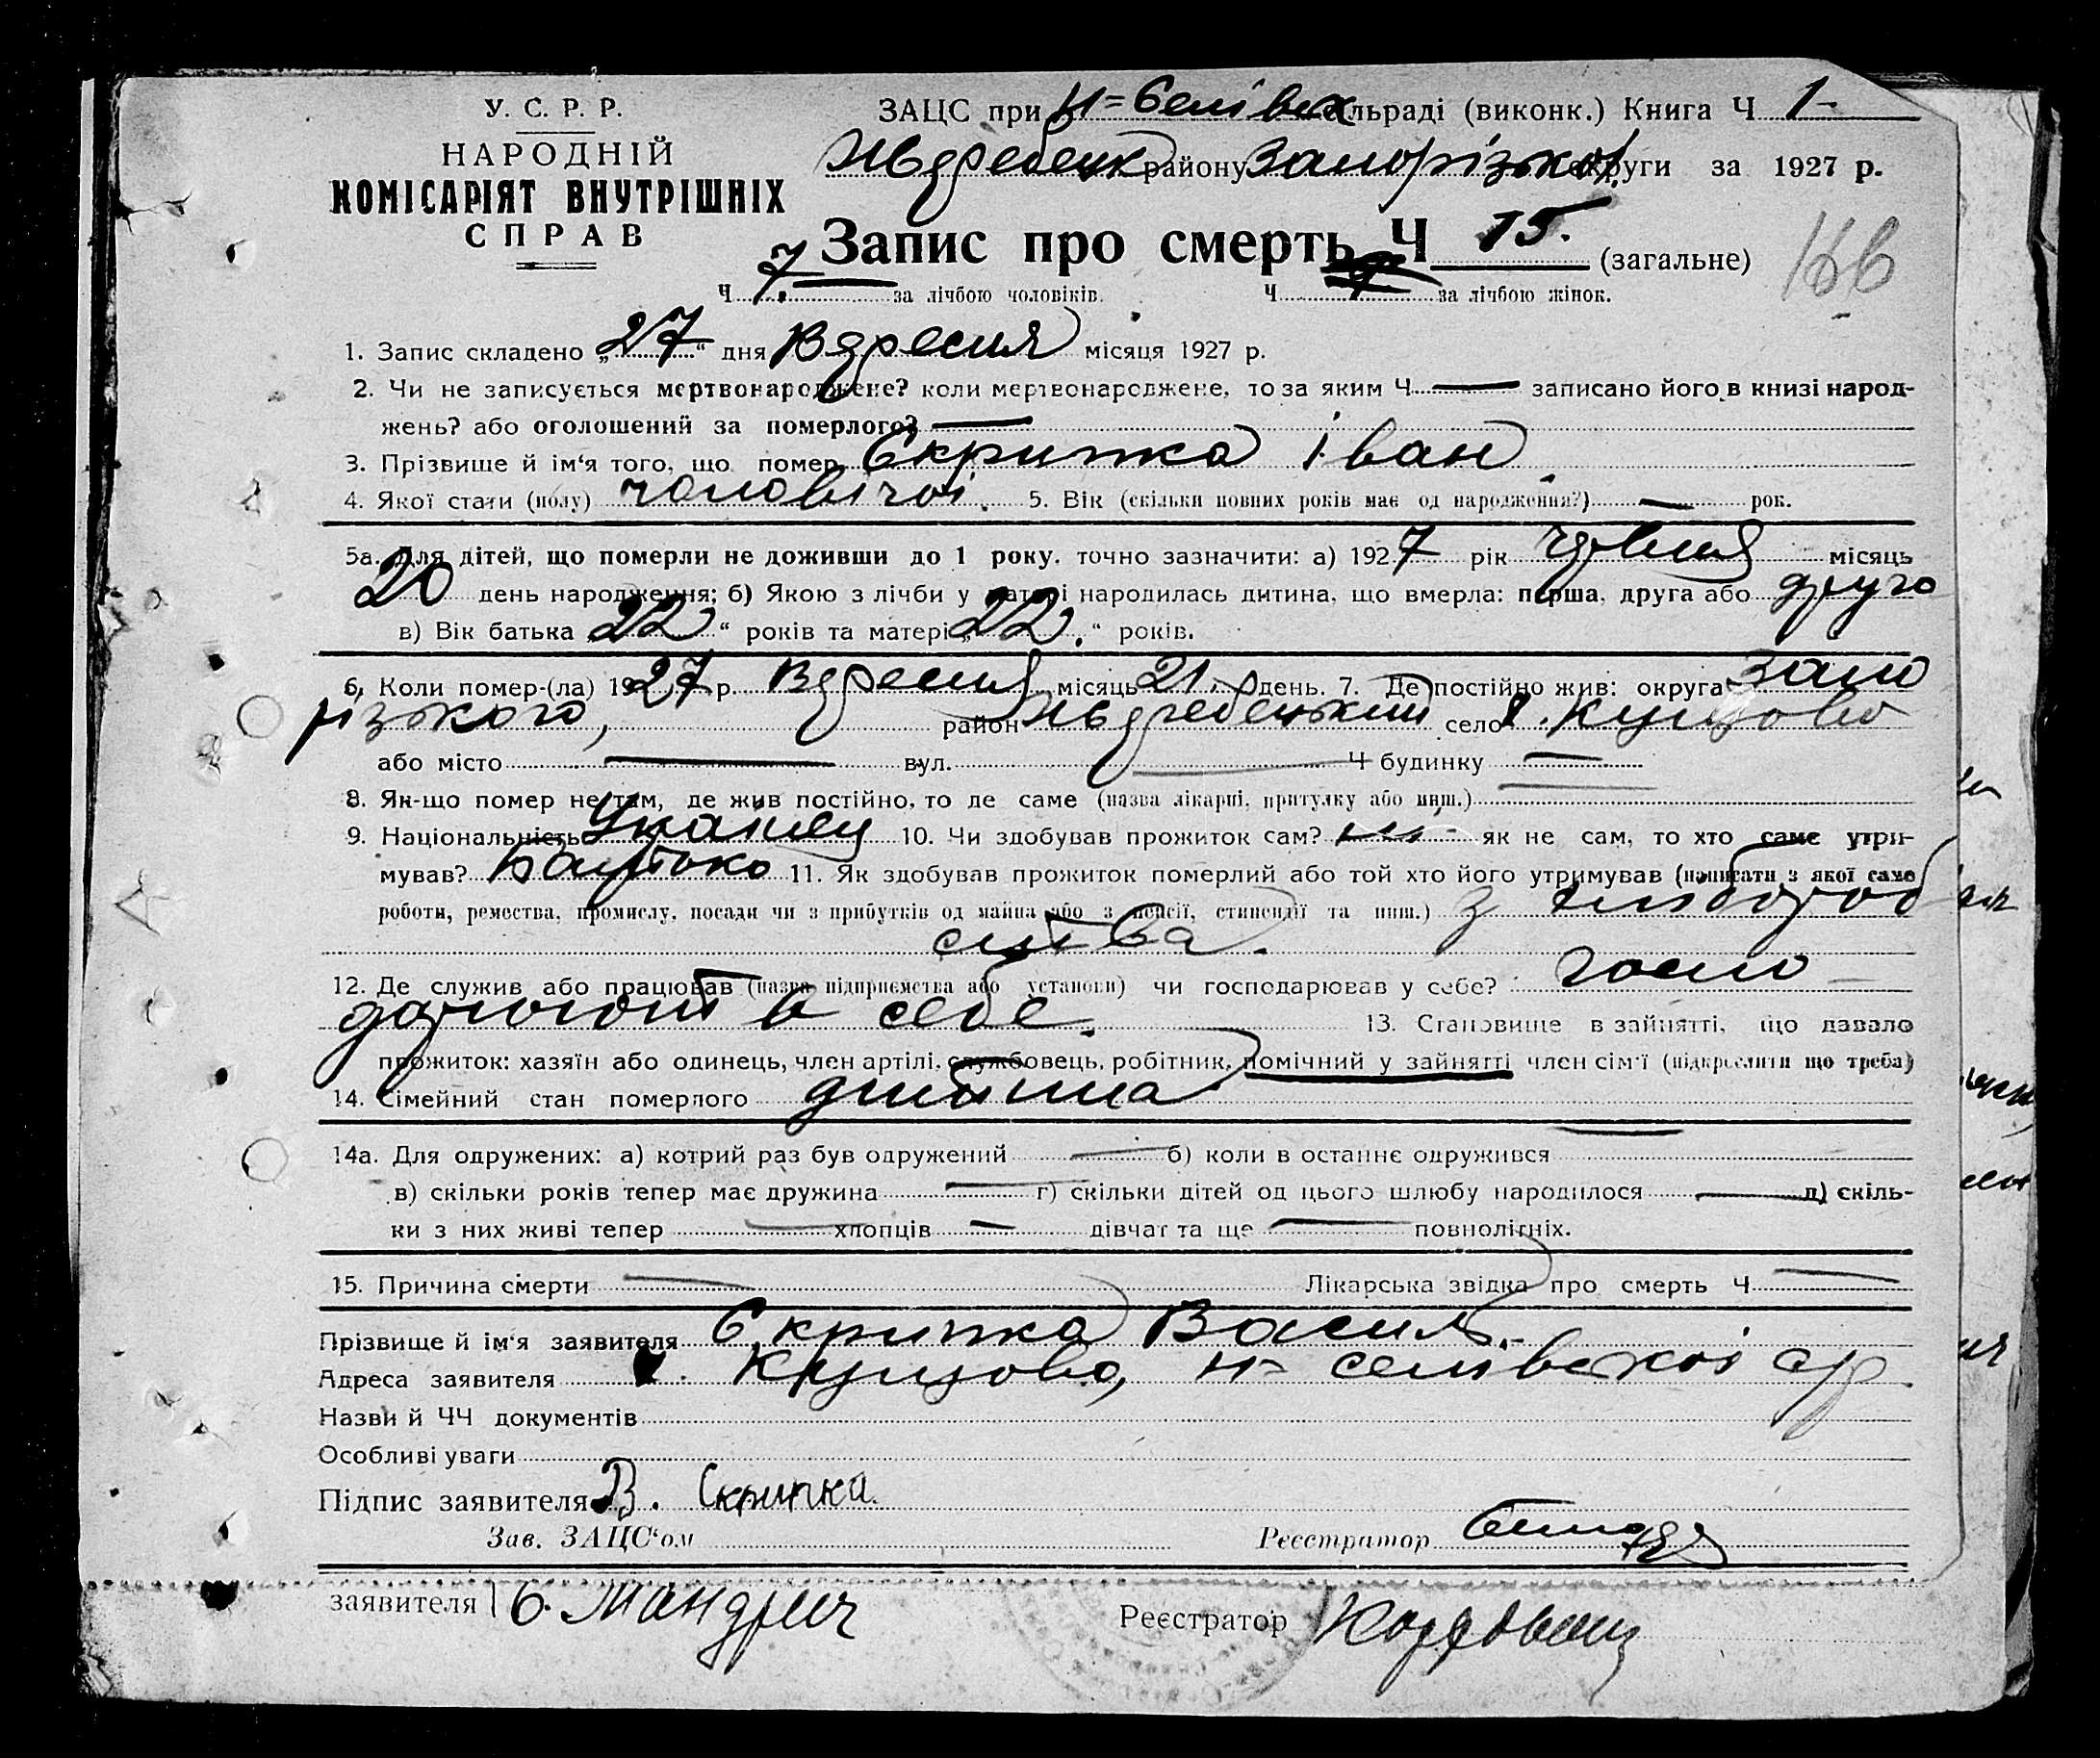 У. С. Р. Р.
НАРОДНІЙ
КОМІСАРІЯТ ВНУТРІШНІХ
СПРАВ
ЗАЦС при Н=Селівск сільраді (виконк.) Книга Ч 1-
району Запорізької округи за 1927 р.
Запис про смерть Ч 15. (загальне)
166
Ч 7. за лічбою чоловіків. Ч за лічбою жінок.
1. Запис складено „27“ дня Вересня місяця 1927 р.
2. Чи не записується мертвонароджене? коли мертвонароджене, то за яким Ч — записано його в книзі народ-
жень? або оголошений за померлого? —
3. Прізвище й ім'я того, що помер Скрипка Іван
4. Якої стати (полу) чоловічої. 5. Вік (скільки повних років має од народження?) — рок.
5а. Для дітей, що померли не доживши до 1 року, точно зазначити: а) 1927 рік місяць
20 день народження; б) Якою з лічби у матері народилась дитина, що вмерла: перша, друга або друга
в) Вік батька „22“ років та матері „22.“ років.
6. Коли помер-(ла) 1927 р. Вересня місяць 21. день. 7. Де постійно жив: округа Запо
різького, район село Х. Купцово
або місто — вул. — Ч будинку —
8. Як-що помер не там, де жив постійно, то де саме (назва лікарні, притулку або инш.) —
9. Національність Українец 10. Чи здобував прожиток сам? ні- як не сам, то хто саме утри-
мував? Батько 11. Як здобував прожиток померлий або той хто його утримував (написати з якої саме
роботи, ремества, промислу, посади чи з прибутків од майна або з пенсії, стипендії та инш.) з хлібороб
ства.
12. Де служив або працював (назва підприємства або установи) чи господарював у себе? госпо-
в себе. 13. Становище в зайнятті, що давало
прожиток: хазяїн або одинець, член артілі, службовець, робітник, помічний у зайнятті член сім'ї (підкреслити що треба)
14. Сімейний стан померлого дитина
14а. Для одружених: а) котрий раз був одружений — б) коли в останнє одружився —
в) скільки років тепер має дружина — г) скільки дітей од цього шлюбу народилося — д) скіль-
ки з них живі тепер — хлопців — дівчат та ще — повнолітніх.
15. Причина смерти — Лікарська звідка про смерть Ч —
Прізвище й ім'я заявителя Скрипка Василь.
Адреса заявителя Х. Купцово, Н-Селівскої ср
Назви й ЧЧ документів
Особливі уваги
Підпис заявителя В. Скрипка.
Зав. ЗАЦС'ом Реєстратор
заявителя Реєстратор